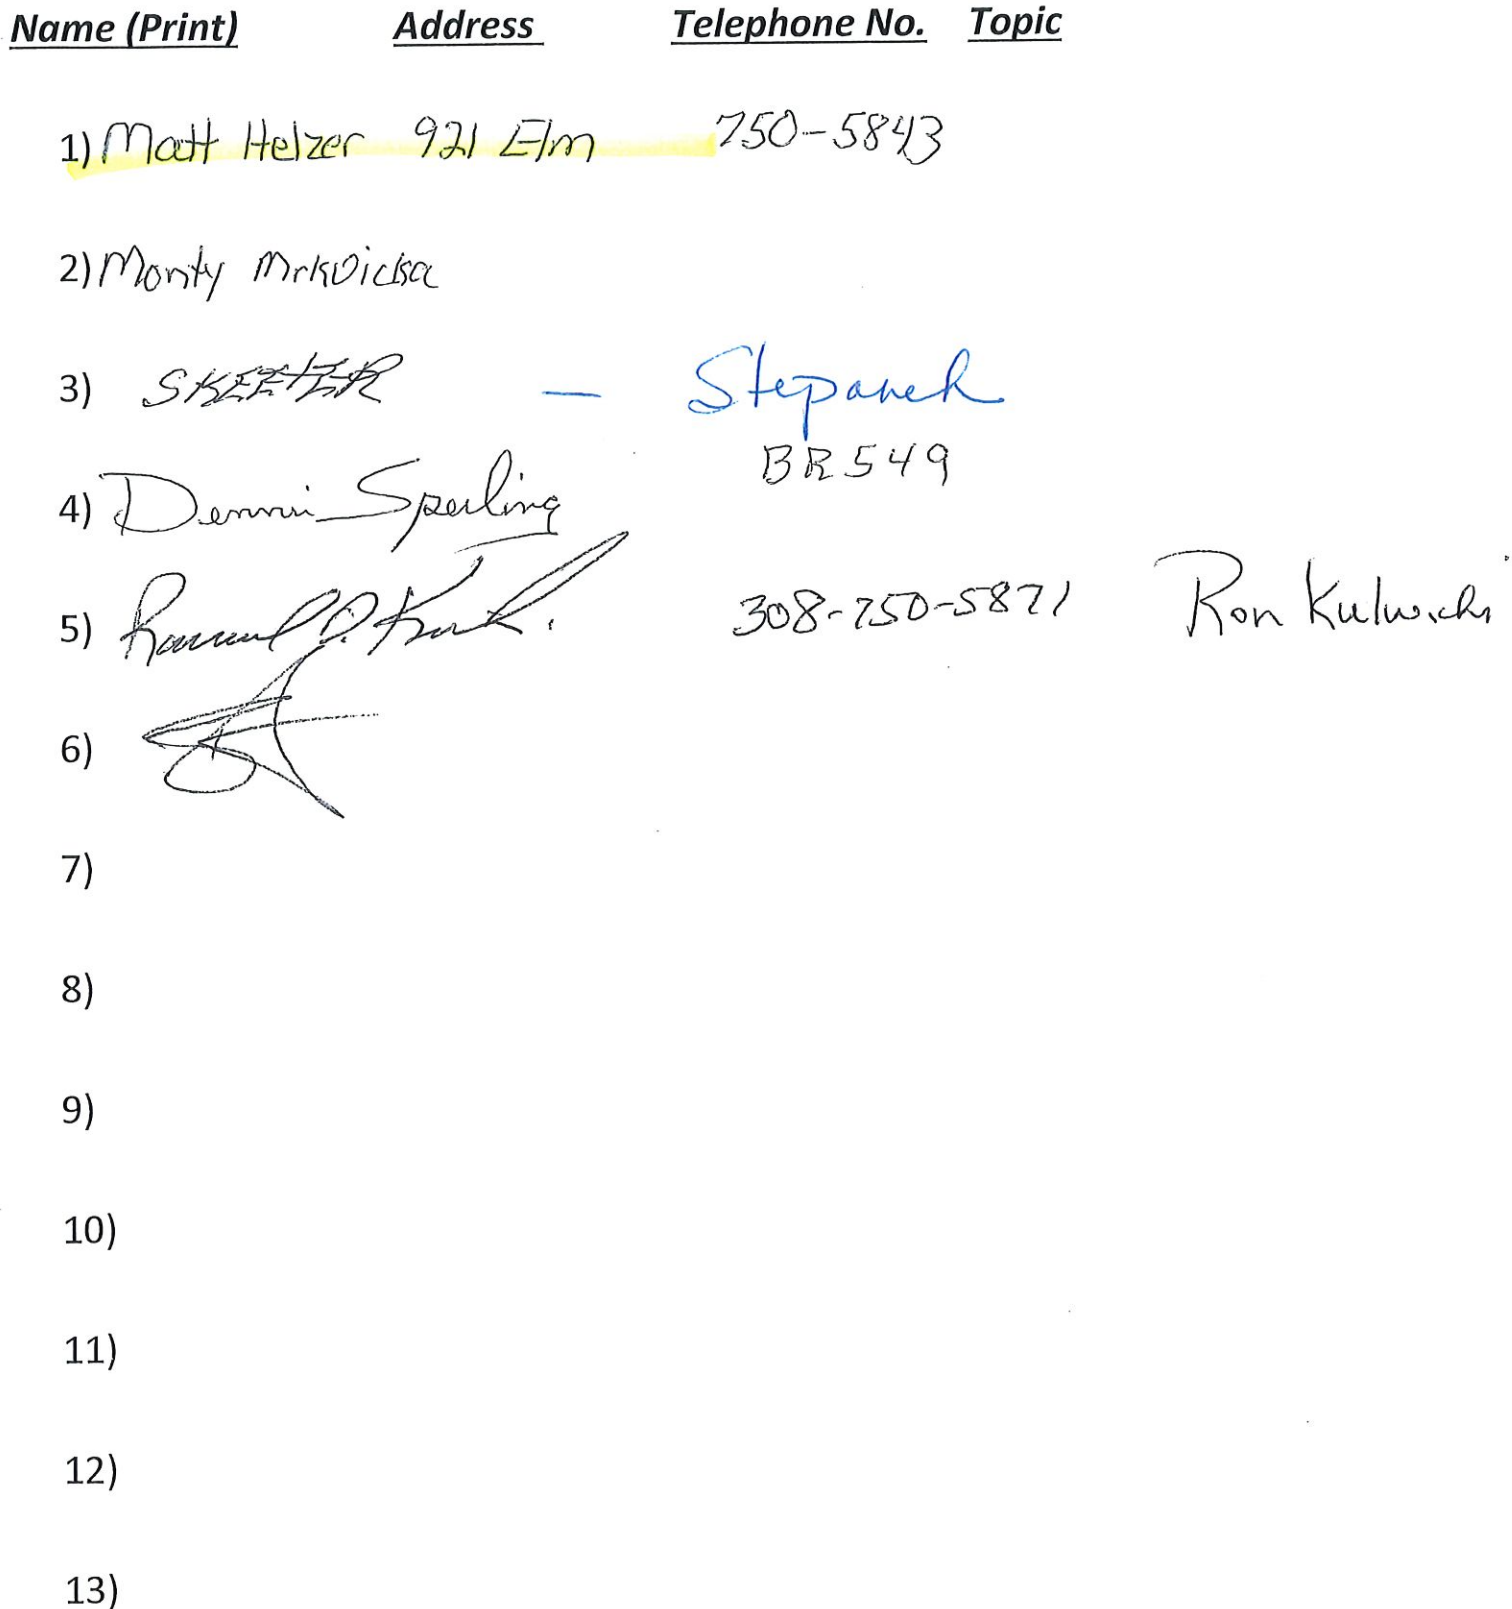 Name (Print) Address Telephone No. Topic
1) Matt Helzer 921 Elm 750-5843
2) Monty Mrkvicka
3) SKEETER — Stepanek
BR549
4) Dennis Sperling
5) 308-750-5871 Ron Kulwicki
6)
7)
8)
9)
10)
11)
12)
13)